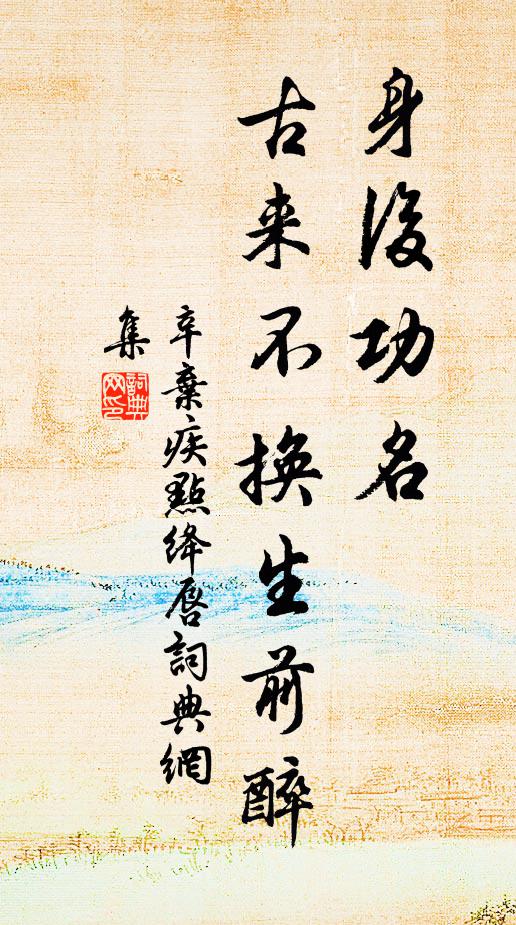 身後功名
古来不換生前醉
辛棄疾點绛唇詞典網
集
詞典網印